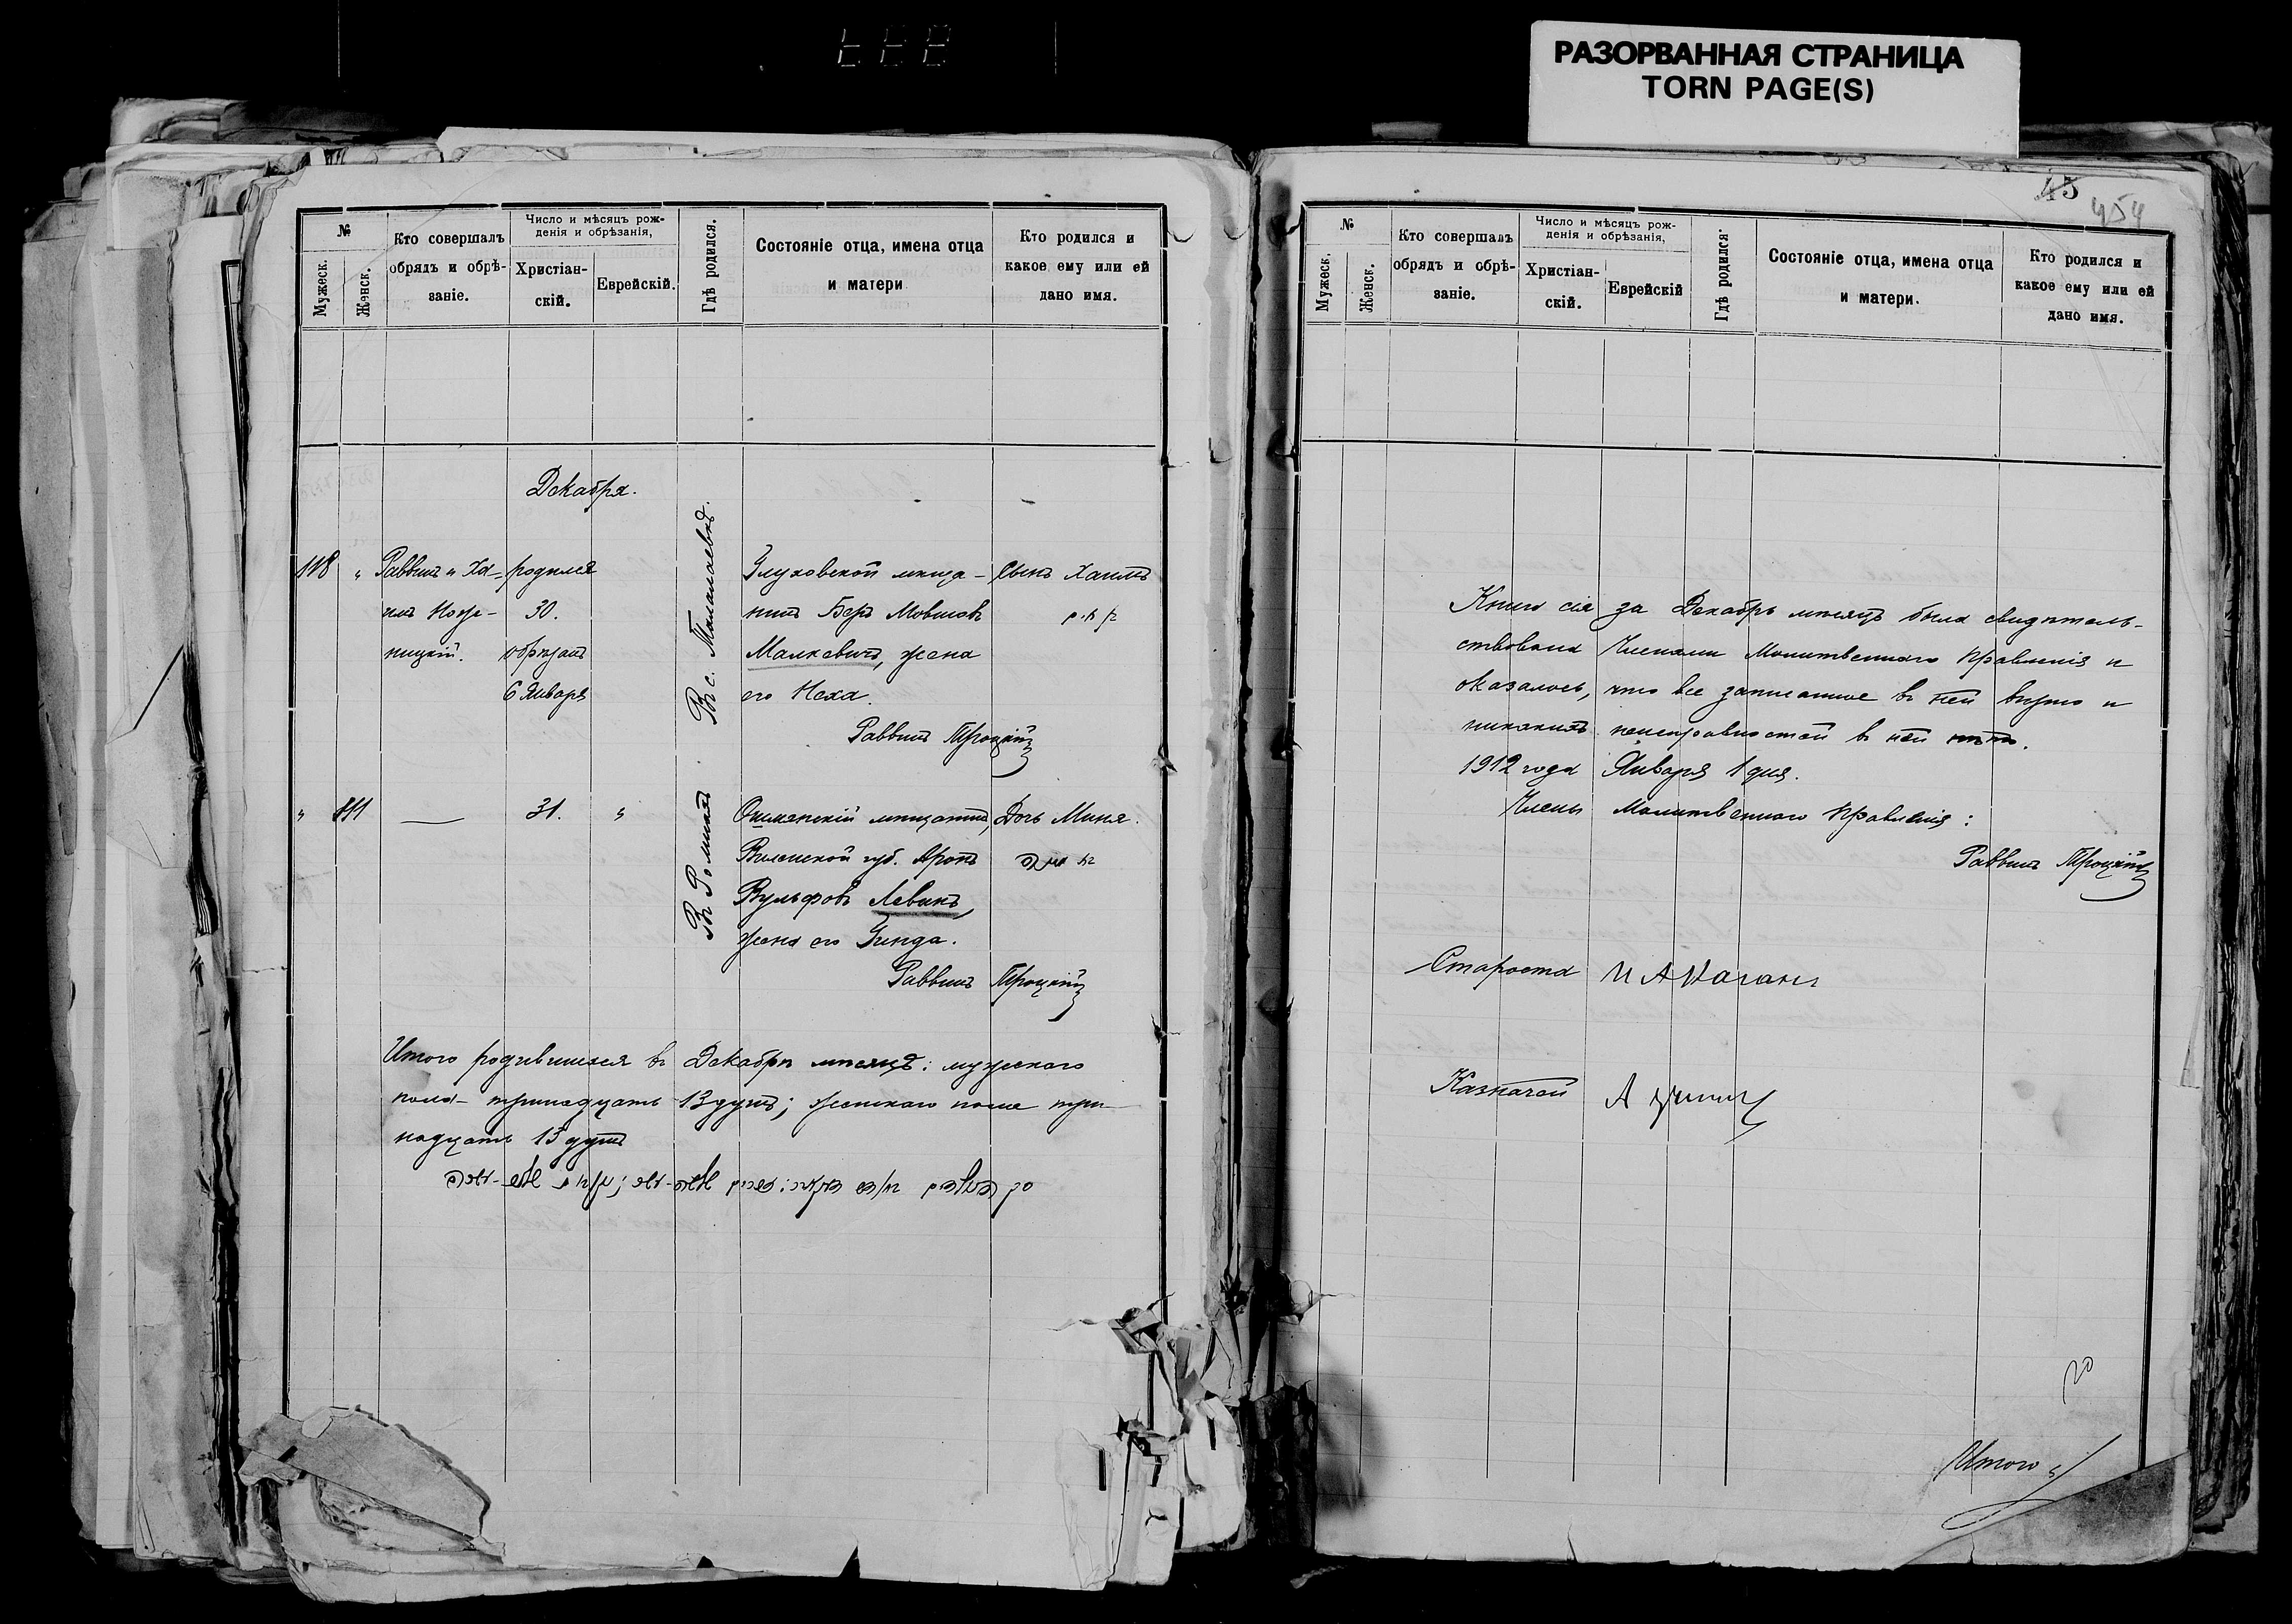 РАЗОРВАННАЯ СТРАНИЦА
TORN PAGE(S)
№
Мужеск.
Женск.
Кто совершалъ
обрядъ и обрѣ-
заніе.
Число и мѣсяцъ рож-
денія и обрѣзанія,
Христіан-
скій.
Еврейскій.
Гдѣ родился.
Состояніе отца, имена отца
и матери
Кто родился и
какое ему или ей
дано имя.
Декабря.
118 " Раввинъ и Ха- родился Глуховской мѣща- Сынъ Хаимъ
30. нинъ Беръ Мовшовъ חיים
ницкій. обрѣзанъ Малкевичъ, жена
6 Января его Неха.
Въ с.
Раввинъ Троцкій
" 111 — 31. " Ошмянскій мѣщанинъ, Дочь Миня.
Виленской губ. Аронъ
Вульфовъ Левинъ,
жена его Гинда.
Въ Ромнахъ
Раввинъ Троцкій
Итого родившихся въ Декабрѣ мѣсяцѣ: мужеского
пола – тринадцать 13 душъ; женскаго пола три-
надцать 13 душъ
45
454
№
Мужеск.
Женск.
Кто совершалъ
обрядъ и обрѣ-
заніе.
Число и мѣсяцъ рож-
денія и обрѣзанія,
Христіан-
скій.
Еврейскій
Гдѣ родился
Состояніе отца, имена отца
и матери.
Кто родился и
какое ему или ей
дано имя.
Книга сія за Декабрь мѣсяцъ была свидѣтель-
ствована Членами Молитвеннаго Правленія и
оказалось, что все записанное въ ней вѣрно и
никакихъ неисправностей въ ней нѣтъ.
1912 года Января 1 дня.
Члены Молитвеннаго Правленія:
Раввинъ Троцкій
Староста И А Каганъ
Казначей А
Итого